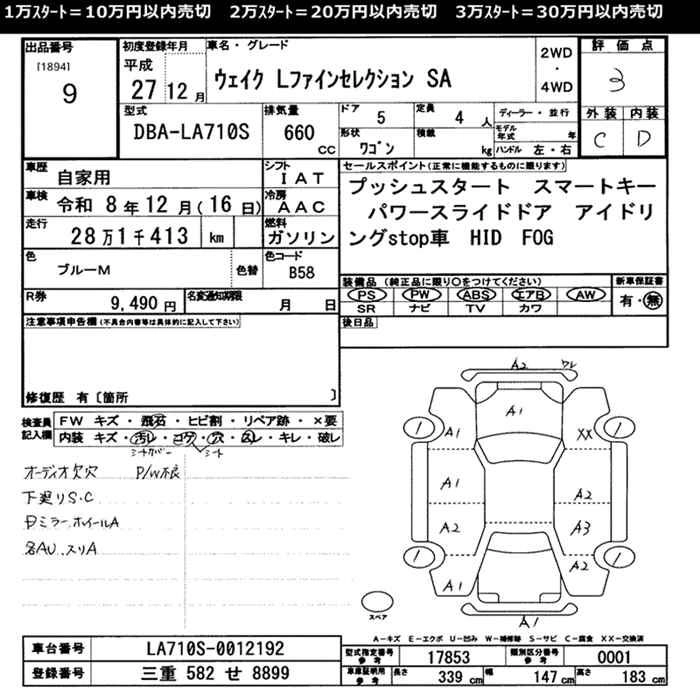 1万ｽﾀｰﾄ＝10万円以内売切　2万ｽﾀｰﾄ＝20万円以内売切　3万ｽﾀｰﾄ＝30万円以内売切
出品番号
[1894]
9
初度登録年月
平成
27 12月
車名・グレード
ウェイク Lファインセレクション SA
2WD
・
4WD
評価点
3
外装 内装
C D
型式
DBA-LA710S
排気量
660 CC
ドア
5
定員
4 人
形状
ﾜｺﾞﾝ
積載
kg
ディーラー・並行
モデル年式 年
ハンドル 左・右
車歴
自家用
シフト
I A T
車検
令和 8年 12月(16日)
冷房
A A C
走行
28万1千413 km
燃料
ガソリン
色
ブルーM
色替
色コード
B58
R券
9,490 円
名変通知期限
月 日
セールスポイント(正常に機能するものに限ります)
プッシュスタート スマートキー
パワースライドドア アイドリ
ングstop車 HID FOG
装備品 (純正品に限り○をつけてください)
PS PW ABS エアB AW
SR ナビ TV カワ
新車保証書
有・無
後日品
注意事項申告欄(不具合内容等は具体的に記入して下さい)
修復歴 有〔箇所 〕
検査員記入欄
FW キズ・飛石・ヒビ割・リペア跡・×要
内装 キズ・汚レ・コゲ・穴・スレ・キレ・破レ
シートカバー シート
オーディオ欠穴 P/W不良
下廻りS.C
Bミラー.ホイールA
各AU.スリA
A2 ワレ
A1
1 A1 XX 1
A1 A2
A2 A3
1 A2 1
A1
A1
スペア
A－キズ E－エクボ U－凹み W－補修跡 S－サビ C－腐食 XX－交換済
車台番号
LA710S-0012192
登録番号
三重 582 せ 8899
型式指定番号 参考
17853
類別区分番号 参考
0001
車庫証明用 参考
長さ 339 cm 幅 147 cm 高さ 183 cm